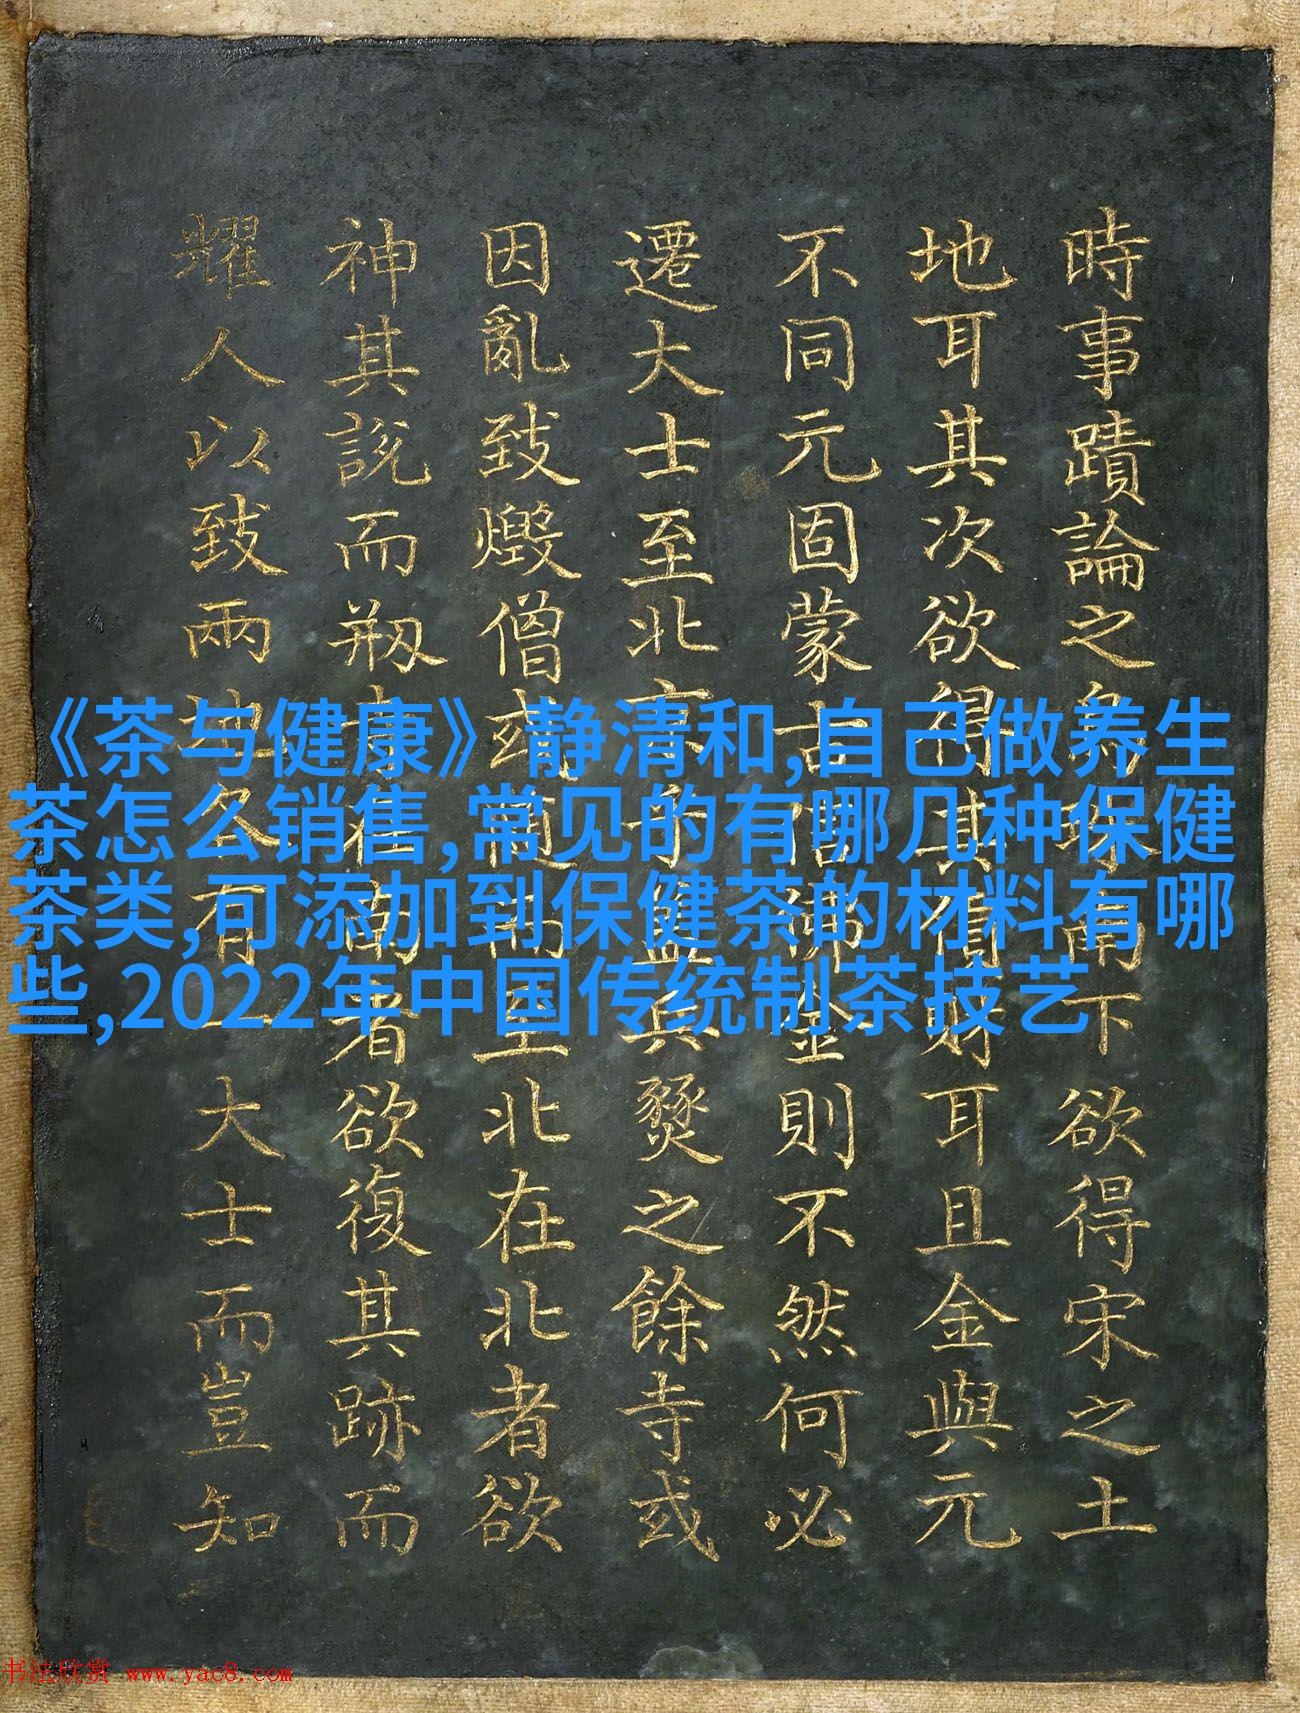 時事蹟論之兵殘南下欲得宋之土
地耳其次欲得其貨財耳且金與元
不同元固蒙古信佛金則不然何必
遷大士至北京予盖兵燹之餘寺或
因亂致燬僧或隨而至北在北者欲
神其說而剏在南者欲復其跡而
耀人以致兩地各有一大士而豈知
《茶与健康》静清和,自己做养生
茶怎么销售,常见的有哪几种保健
茶类,可添加到保健茶的材料有哪
些,2022年中国传统制茶技艺
书法欣赏 www.yac8.com